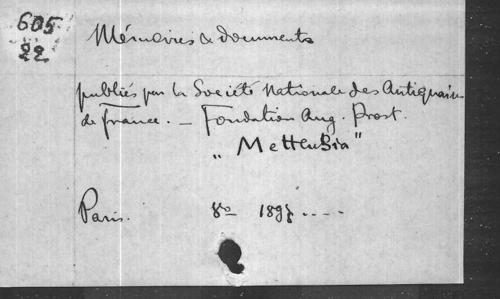 605
22
Mémoires & documents
publiés par la Société Nationale des Antiquaires
de France. — Fondation Aug. Prost.
„ Mettensia "
Paris. 8o 1897....